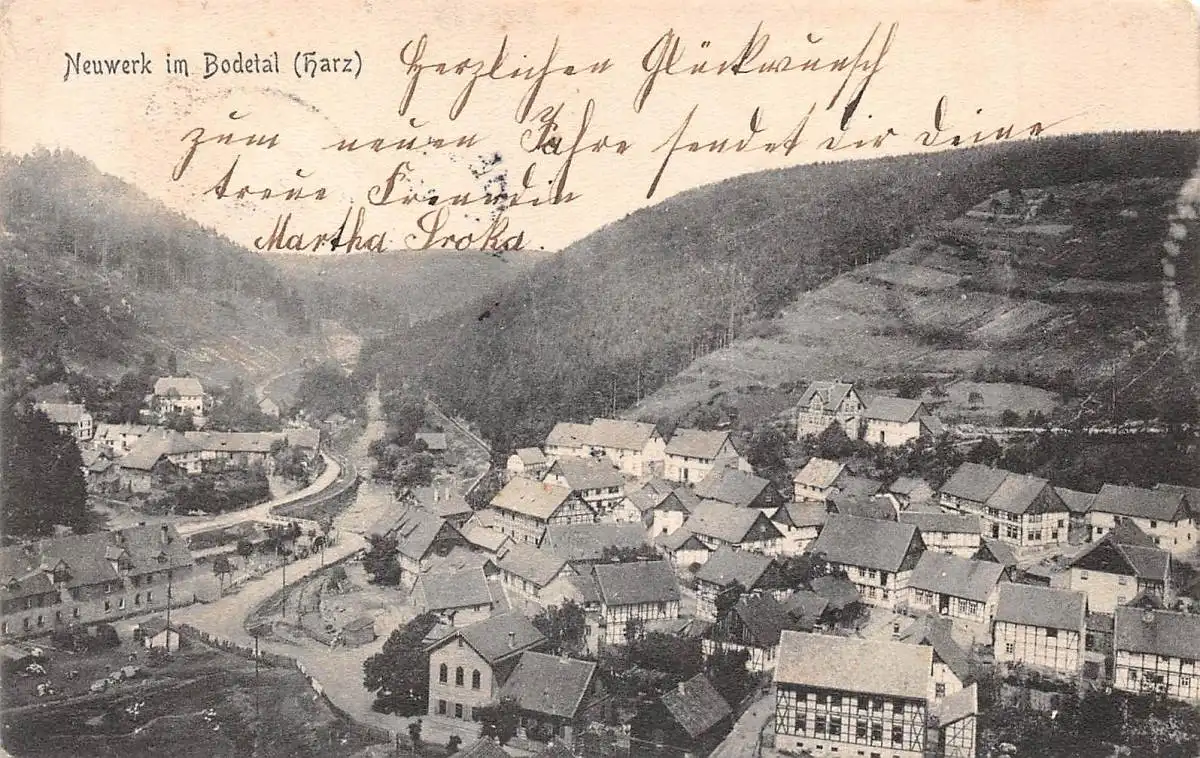 Neuwerk im Bodetal (Harz)
Herzlichen Glückwunsch
zum neuen Jahre sendet dir deine
treue Freundin
Martha Sroka.